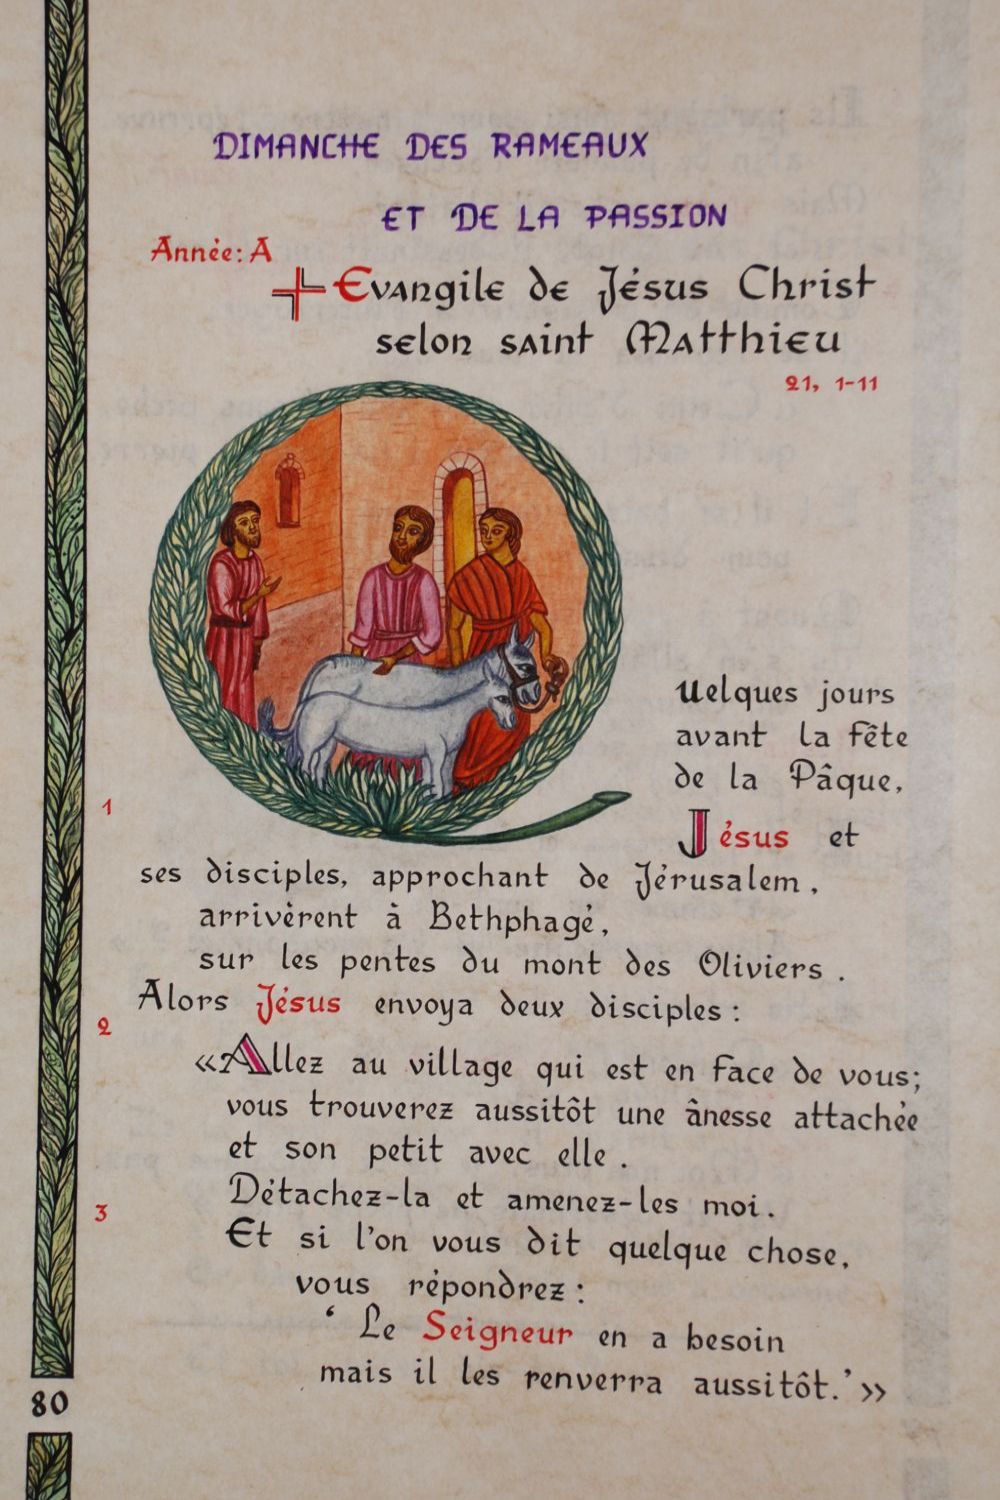 DIMANCHE DES RAMEAUX
ET DE LA PASSION
Année: A
Evangile de Jésus Christ
selon saint Matthieu
21, 1-11
Quelques jours
avant la fête
de la Pâque,
1
Jésus et
ses disciples, approchant de Jérusalem,
arrivèrent à Bethphagé,
sur les pentes du mont des Oliviers.
Alors Jésus envoya deux disciples:
2
«Allez au village qui est en face de vous;
vous trouverez aussitôt une ânesse attachée
et son petit avec elle.
Détachez-la et amenez-les moi.
3
Et si l'on vous dit quelque chose,
vous répondrez:
‘Le Seigneur en a besoin
mais il les renverra aussitôt.’»
80